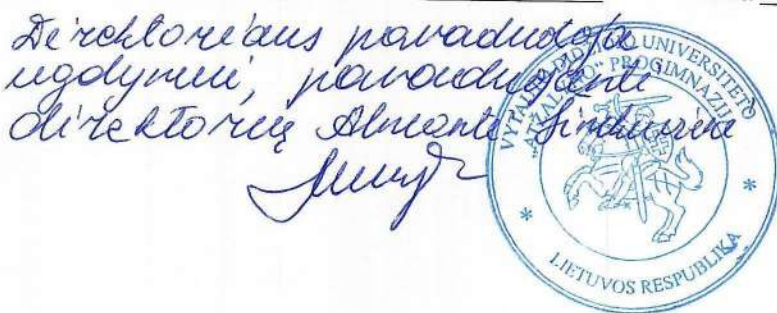 Direktoriaus pavaduotoja
ugdymui, pavaduojanti
direktorių Almantė
VYTAUTO DIDŽIOJO UNIVERSITETO
„ATŽALYNO“ PROGIMNAZIJA
LIETUVOS RESPUBLIKA